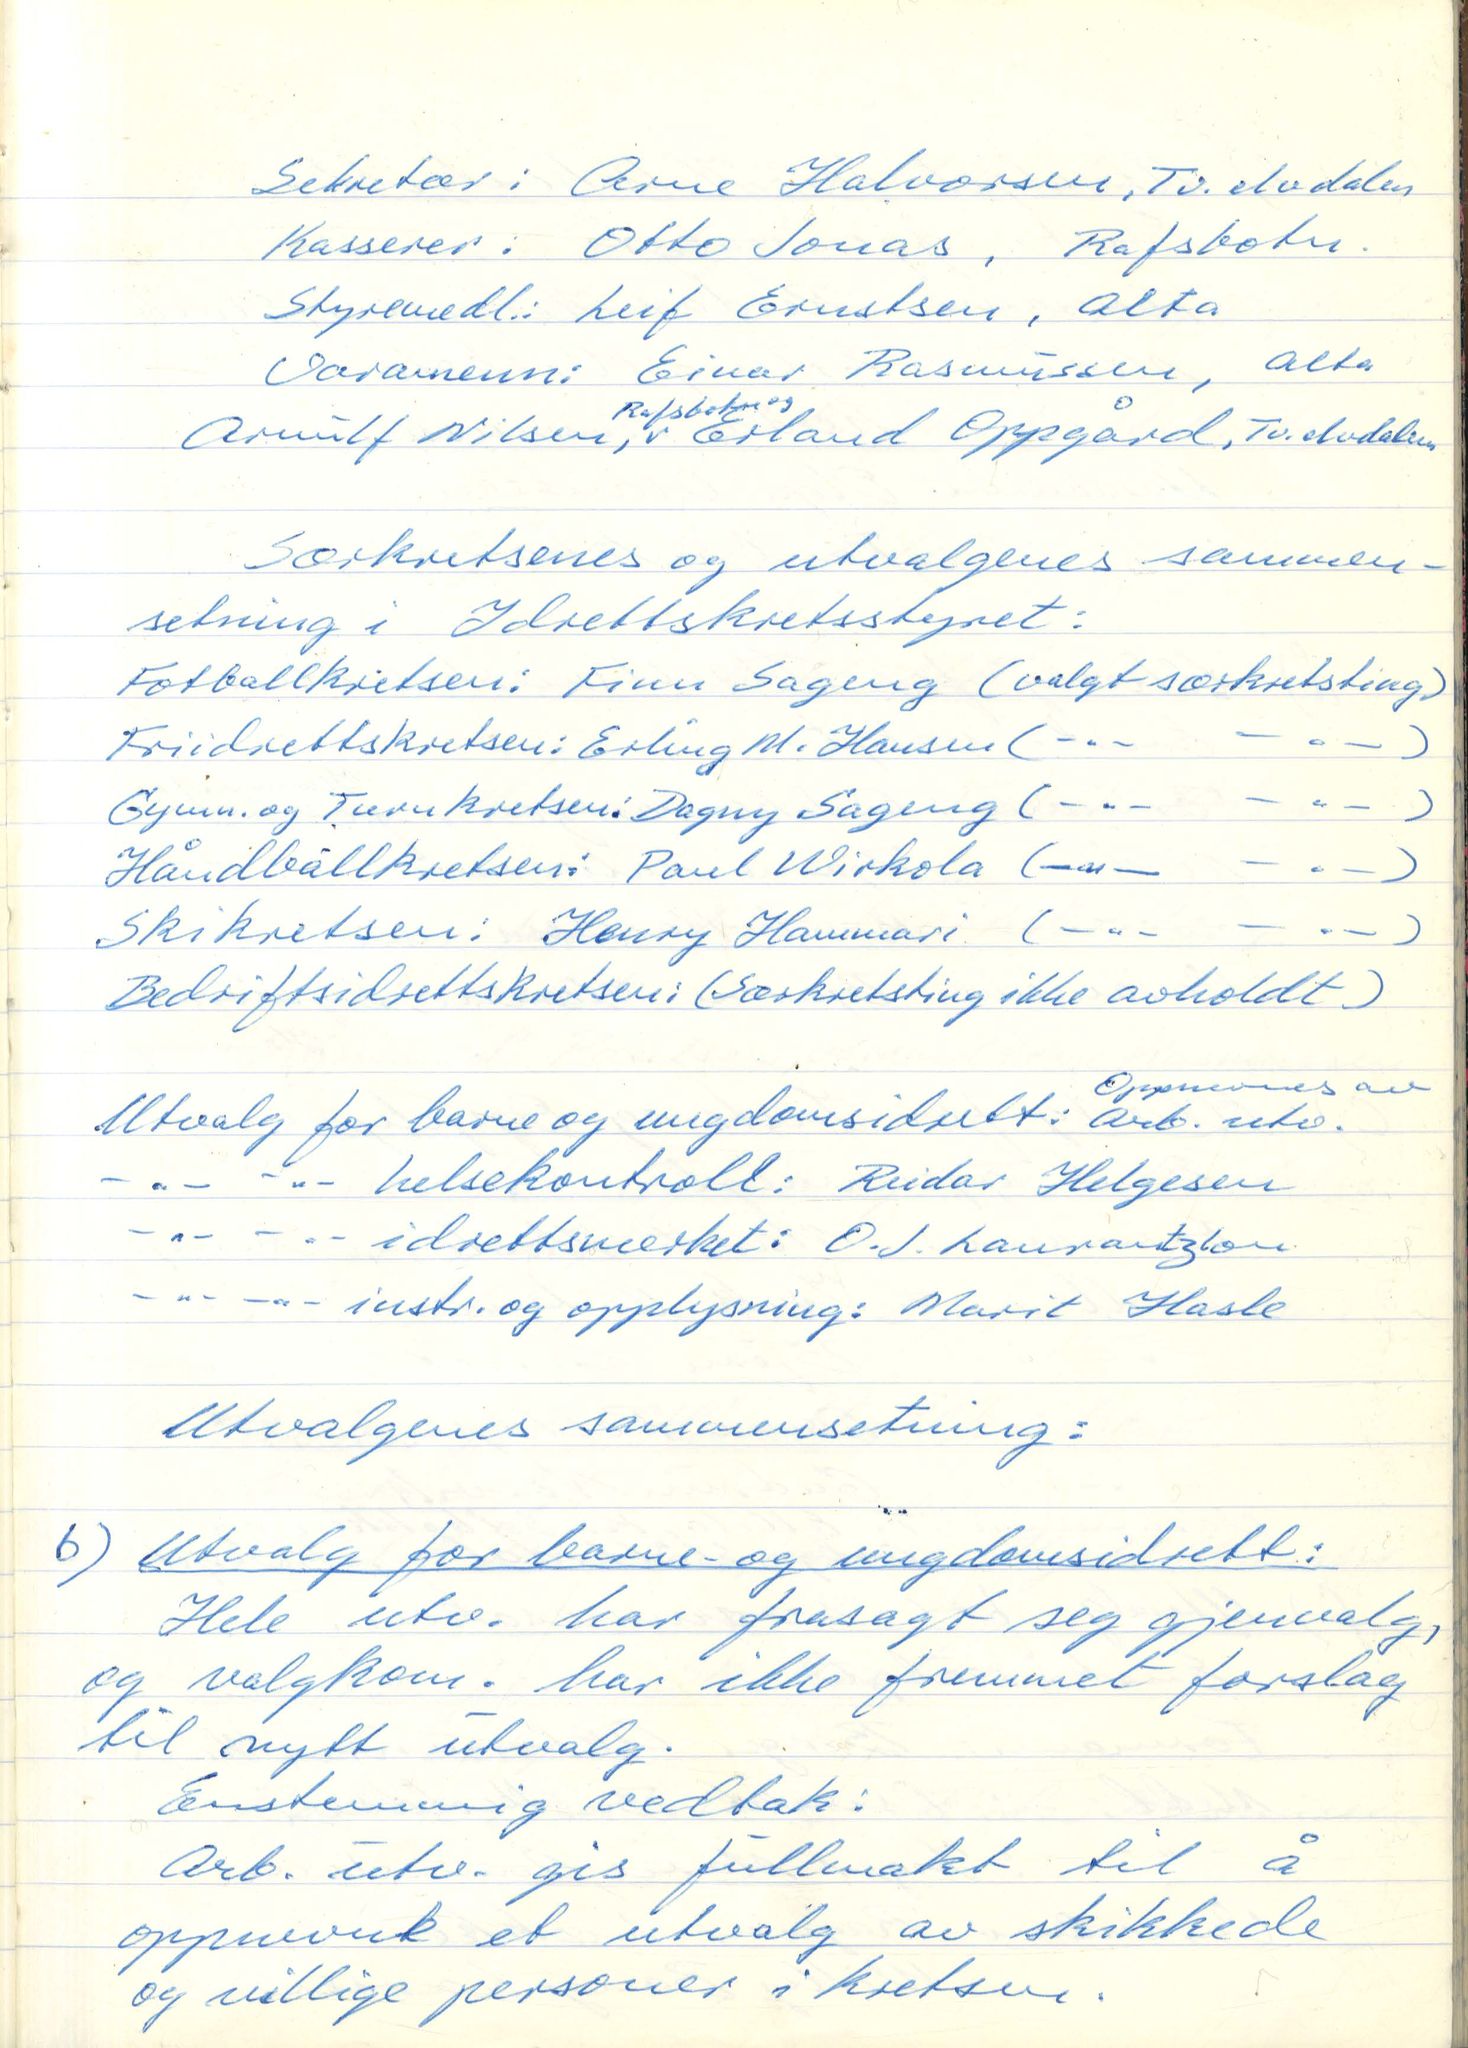 Sekretær: Arne Halvorsen, Tv. elvdalen
Kasserer: Otto Jonas, Rafsbotn.
Styremedl.: Leif Ernstsen, Alta
Varamenn: Einar Rasmussen, Alta
Arnulf Nilsen, Rafsbotn og Erland Oppgård, Tv. elvdalen
Særkretsenes og utvalgenes sammen-
setning i Idrettskretsstyret:
Fotballkretsen: Finn Sageng (valgt særkretsting)
Friidrettskretsen: Erling M. Hansen ( -"- -"- )
Gymn. og Turnkretsen: Dagny Sageng ( -"- -"- )
Håndballkretsen: Paul Wirkola ( -"- -"- )
Skikretsen: Henry Hammari ( -"- -"- )
Bedriftsidrettskretsen: (Særkretsting ikke avholdt)
Utvalg for barne og ungdomsidrett: Oppnevnes av Arb. utv.
-"- -"- helsekontroll: Reidar Helgesen
-"- -"- idrettsmerket: O.J.
-"- -"- instr. og opplysning: Marit Hasle
Utvalgenes sammensetning:
b) Utvalg for barne- og ungdomsidrett:
Hele utv. har frasagt seg gjenvalg,
og valgkom. har ikke fremmet forslag
til nytt utvalg.
Enstemmig vedtak:
Arb. utv. gis fullmakt til å
oppnevnt et utvalg av skikkede
og villige personer i kretsen.